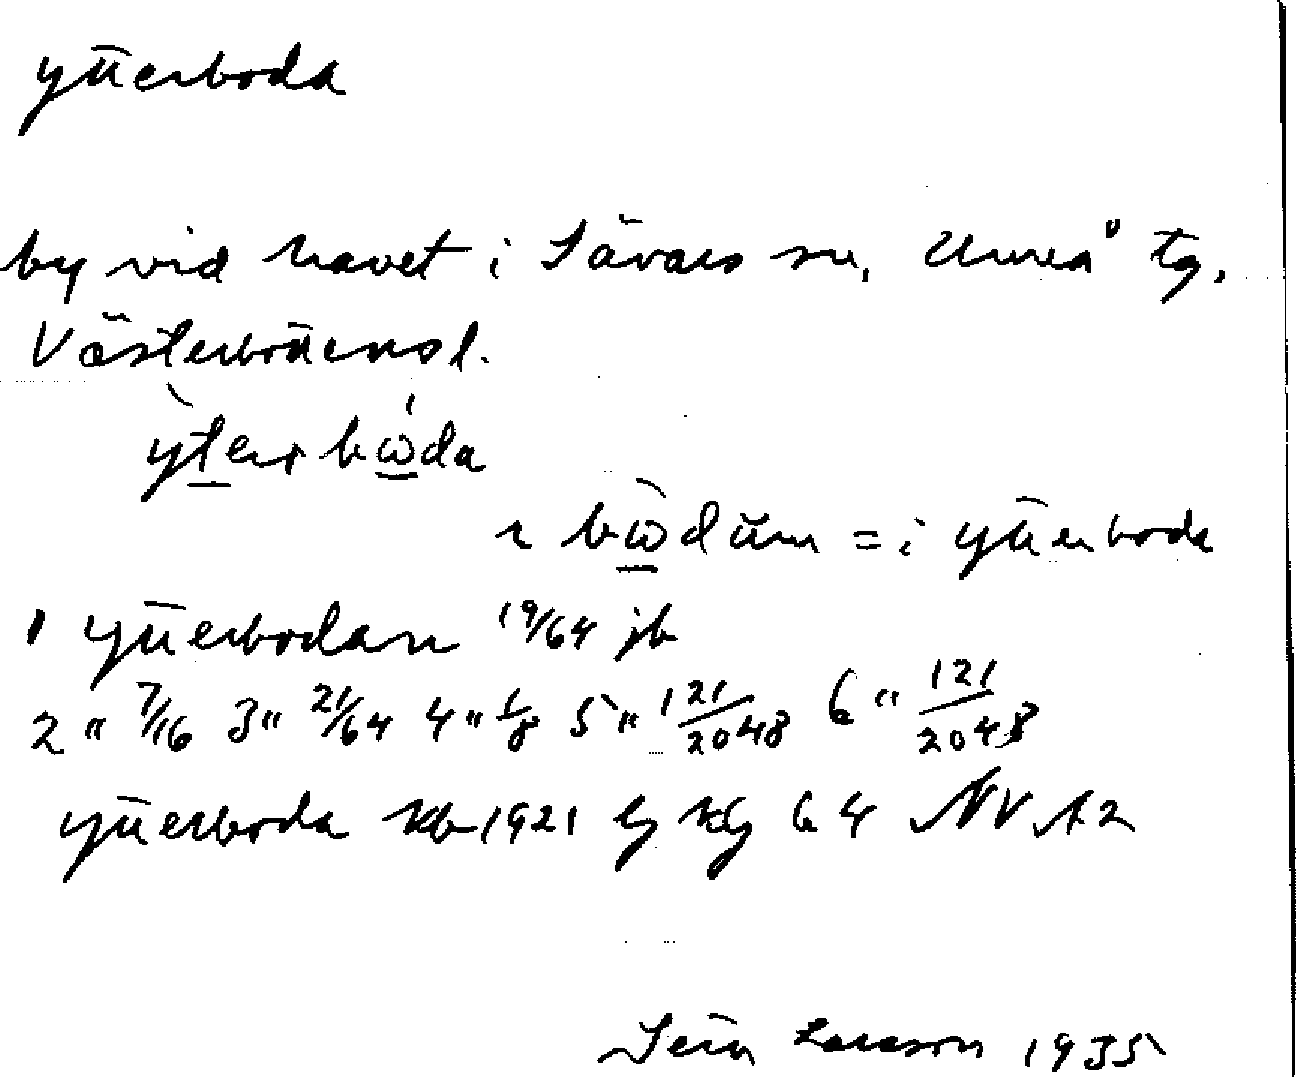 Ytterboda
by vid havet i Sävars sn, Umeå tg,
Västerbottens l.
ỳterbώda
ı bὼdŭm = i Ytterboda
1 Ytterbodan 19/64 jb
2 " 7/16 3 " 21/64 4 " 1/8 5 " 121/2048 6 " 121/2048
Ytterboda kb 1921 Gkg 64 NV A2
Larsson 1935